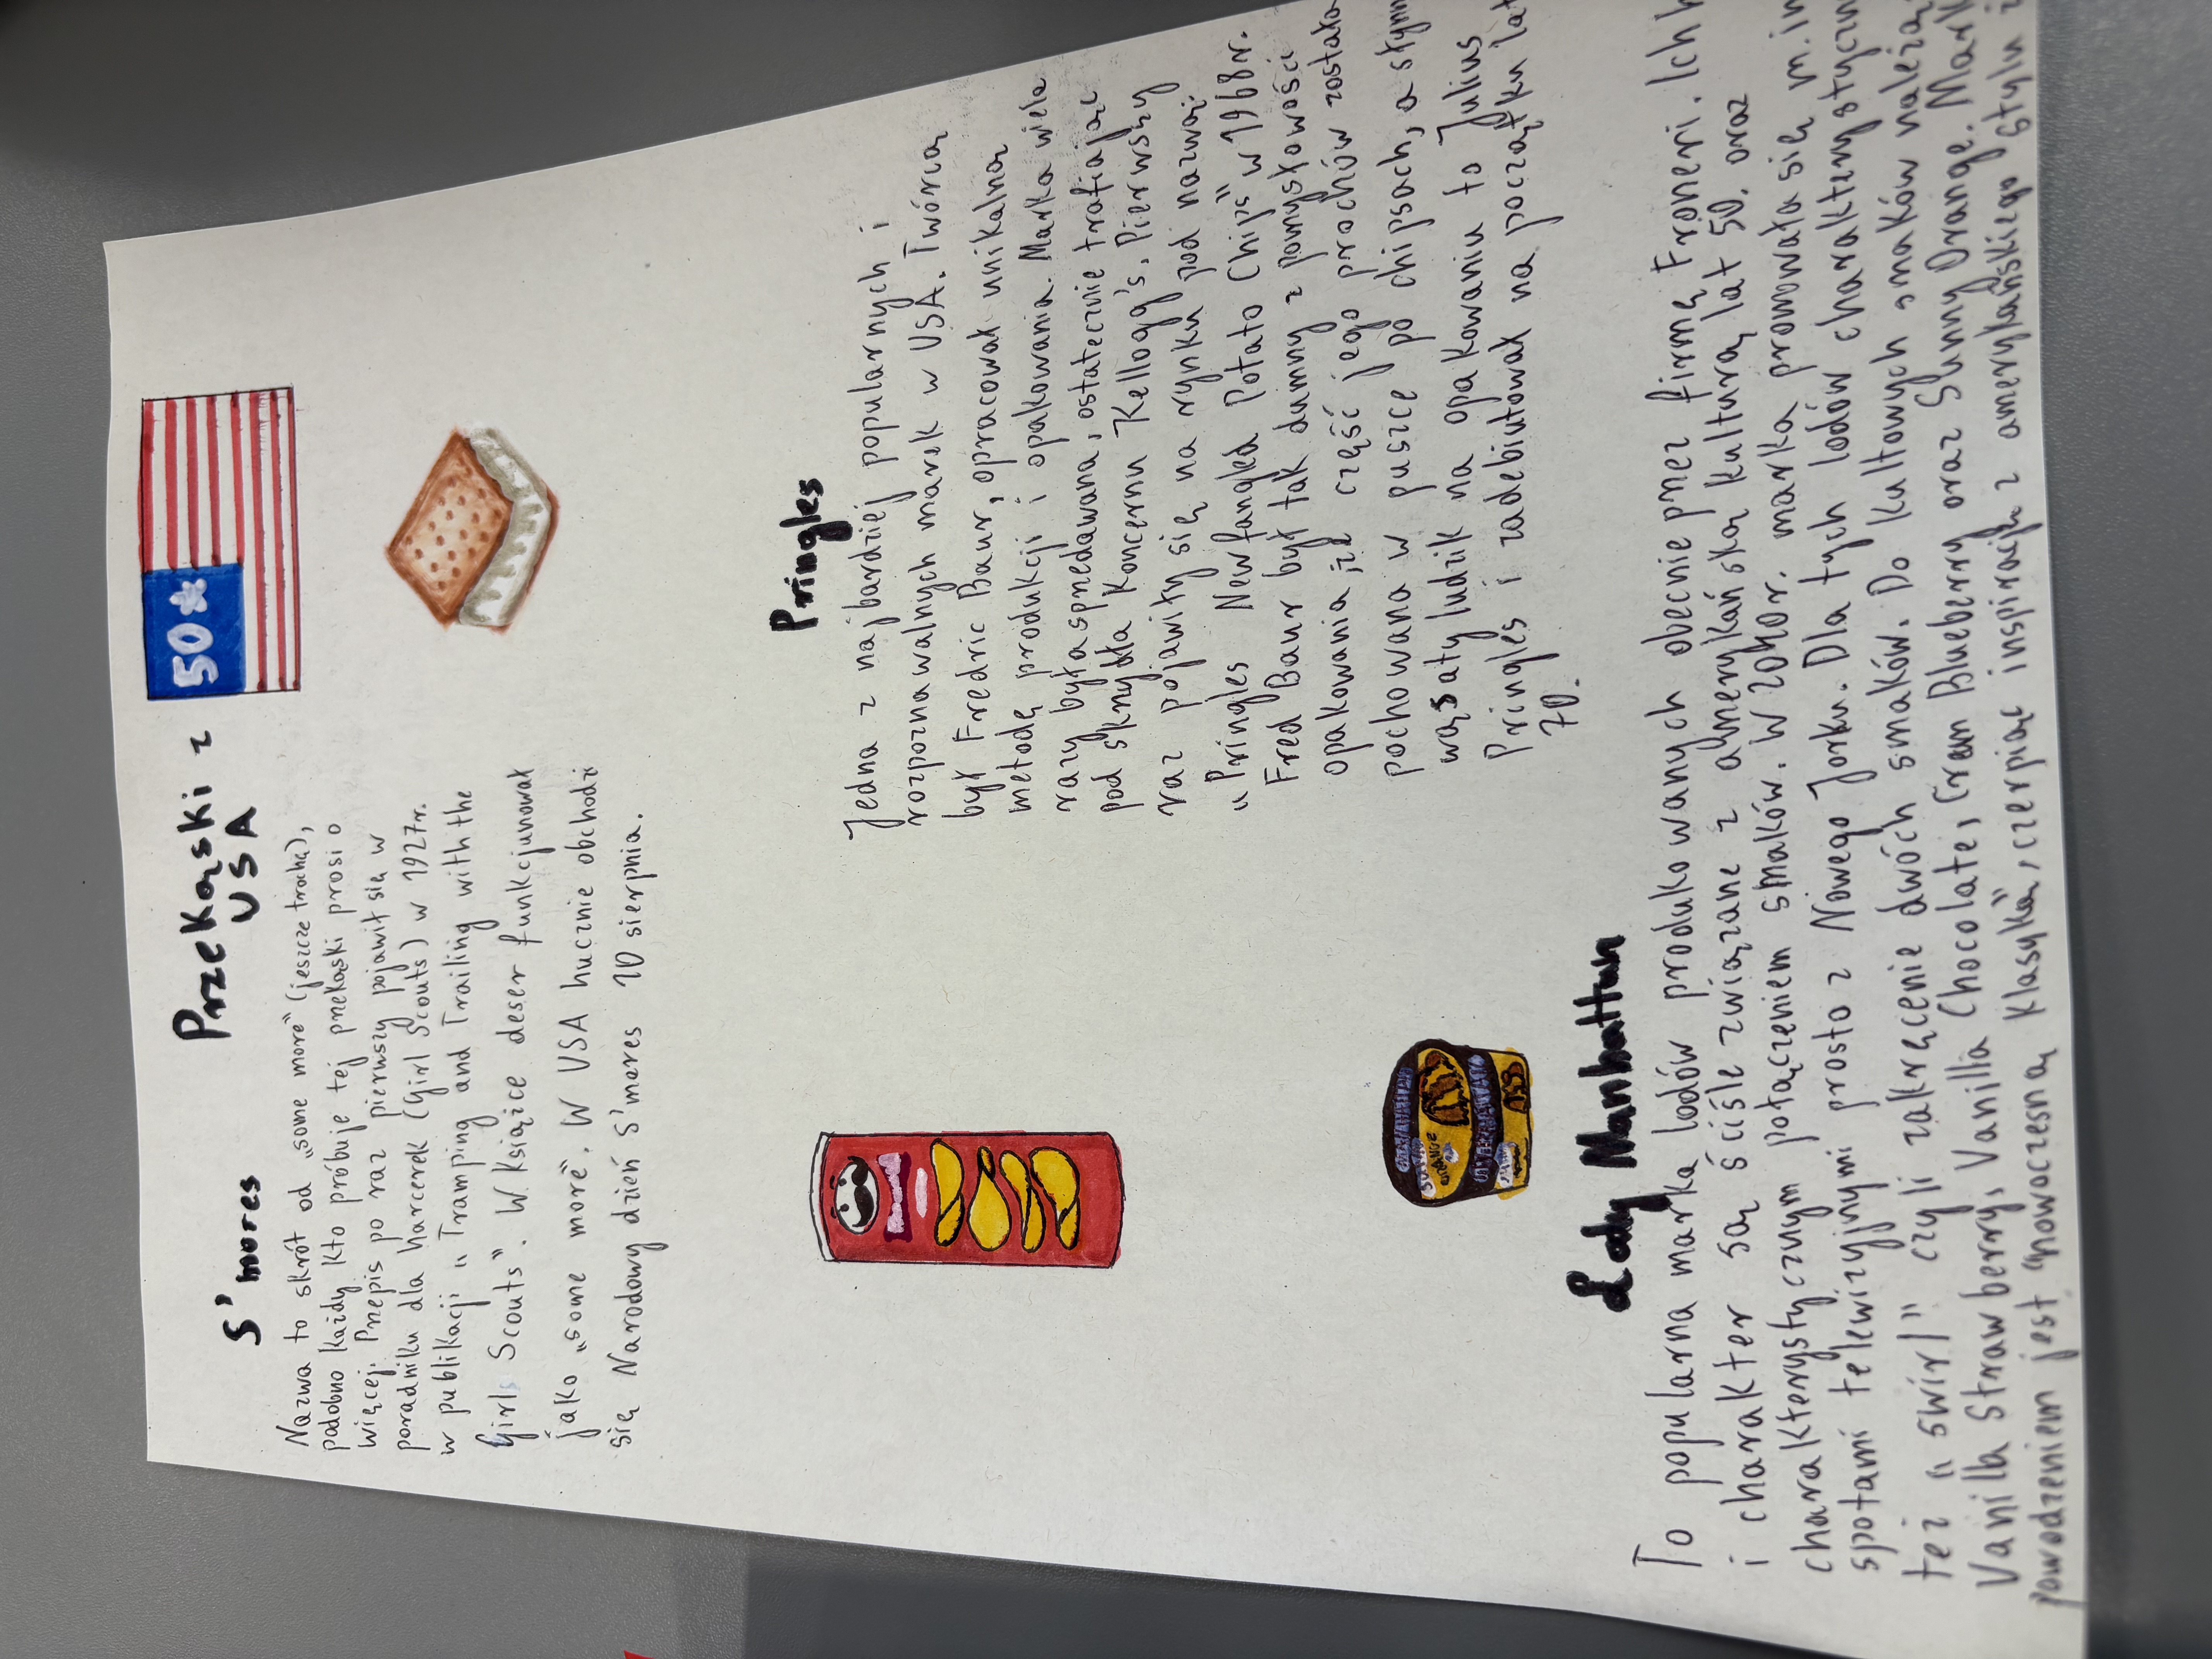 Przekąski z
USA
50
S'mores
Nazwa to skrót od „some more" (jeszcze trochę),
podobno każdy kto próbuje tej przekąski prosi o
więcej. Przepis po raz pierwszy pojawił się w
poradniku dla harcerek (Girl Scouts) w 1927r.
w publikacji „Tramping and Trailing with the
Girls Scouts". W książce deser funkcjunował
jako „some more". W USA hucznie obchodzi
się Narodowy dzień S'mores 10 sierpnia.
Pringles
Jedna z najbardziej popularnych i
rozpoznawalnych marek w USA. Twórcą
był Fredric Baur, opracował unikalną
metodę produkcji i opakowania. Marka wiele
razy była sprzedawana, ostatecznie trafiając
pod skrzydła koncernu Kellogg's. Pierwszy
raz pojawiły się na rynku pod nazwą:
„Pringles Newfangled Potato Chips" w 1968r.
Fred Baur był tak dumny z pomysłowości
opakowania, że część jego prochów została
pochowana w puszce po chipsach, a słynny
wąsaty ludzik na opakowaniu to Julius
Pringles i zadebiutował na początku lat
70.
Lady Manhattan
To popularna marka lodów produkowanych obecnie przez firmę Froneri. Ich
i charakter są ściśle związane z amerykańską kulturą lat 50. oraz
charakterystycznym połączeniem smaków. W marka promowała się m.in
spotami telewizyjnymi prosto z Nowego Jorku. Dla tych lodów charakterystyczn
też „swirl" czyli zakręcenie dwóch smaków. Do kultowych smaków należą
Vanilla Strawberry, Vanilla Chocolate, Cream Blueberry oraz Sunny Orange.
powodzeniem jest „nowoczesną klasyką", czerpiąc inspirację z amerykańskiego stylu